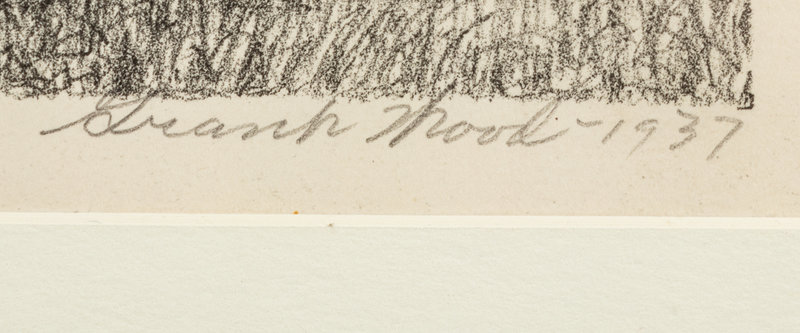 Grant Wood - 1937